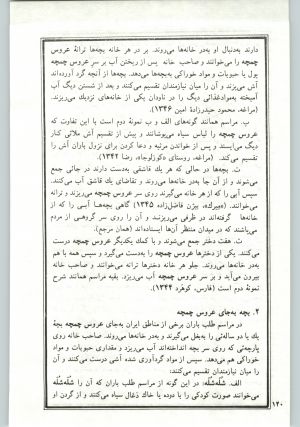 دارند به‌دنبال او به‌در خانه‌ها می‌روند. بر در هر خانه بچه‌ها ترانهٔ عروس
چمچه را می‌خوانند و صاحب خانه پس از ریختن آب بر سر عروس چمچه
پول یا حبوبات و مواد خوراکی به‌بچه‌ها می‌دهد. بچه‌ها از آنچه گرد آورده‌اند
آش می‌پزند و آن را میان نیازمندان تقسیم می‌کنند و بعد از شستن دیگ آب
آمیخته به‌موادغذائی دیگ را در ناودان یکی از خانه‌های نزدیک می‌ریزند.
(مراغه، محمود حیدرزادهٔ امین ۱۳۴۶)
ب. مراسم همانند گونه‌های الف و ب نمونهٔ دوم است با این تفاوت که
عروس چمچه را لباس سیاه می‌پوشانند و پیش از تقسیم آش ملائی کنار
دیگ می‌ایستد و پس از خواندن مرثیه و دعا کردن برای نزول باران آش را
تقسیم می‌کند. (مراغه، روستای دکوزلوجاه، رضا ۱۳۴۲)
پ. بچه‌ها در حالی که هر یک قاشقی به‌دست دارند در جائی جمع
می‌شوند و از آن جا به‌در خانه‌ها می‌روند و تقاضای یک قاشق آب می‌کنند.
سپس آبی را که از هر خانه می‌گیرند روی سر عروس چمچه می‌ریزند و ترانه
می‌خوانند. (مهرک، بیژن فاضل‌زاده ۱۳۴۵) گاهی بچه‌ها آبی را که از
خانه‌ها گرفته‌اند در ظرفی می‌ریزند و آن را روی سر گروهی از مردم
می‌پاشند که در میدان منتظر آن‌ها ایستاده‌اند (همان مرجع).
ت. هفت دختر جمع می‌شوند و با کمک یکدیگر عروس چمچه درست
می‌کنند. یکی از دخترها عروس چمچه را به‌دست می‌گیرد و سپس همه با هم
به‌در خانه‌ها می‌روند. جلو هر خانه دخترها ترانه می‌خوانند و صاحب خانه
بیرون می‌آید و بر سر عروس چمچه آب می‌ریزد. بقیه مراسم همانند شرح
نمونهٔ دوم است (فارس، کوهرد ۱۳۴۴).
۲. بچه به‌جای عروس چمچه
در مراسم طلب باران برخی از مناطق ایران به‌جای عروس چمچه بچهٔ
یک یا دو ساله‌ئی را به‌بغل می‌گیرند و به‌در خانه‌ها می‌روند. صاحب خانه روی
پارچه‌ئی که روی سر بچه انداخته‌اند آب می‌ریزد و مقداری حبوبات و مواد
خوراکی هم می‌دهد. سپس از مواد گردآوری شده آشی درست می‌کنند و
آن را میان نیازمندان تقسیم می‌کنند:
الف. شلّه‌شلّه: در این گونه از مراسم طلب باران که آن را شلّه‌شلّه
می‌خوانند صورت کودکی را با دوده یا خاکه ذغال سیاه می‌کنند و از گردن او
۱۲۰